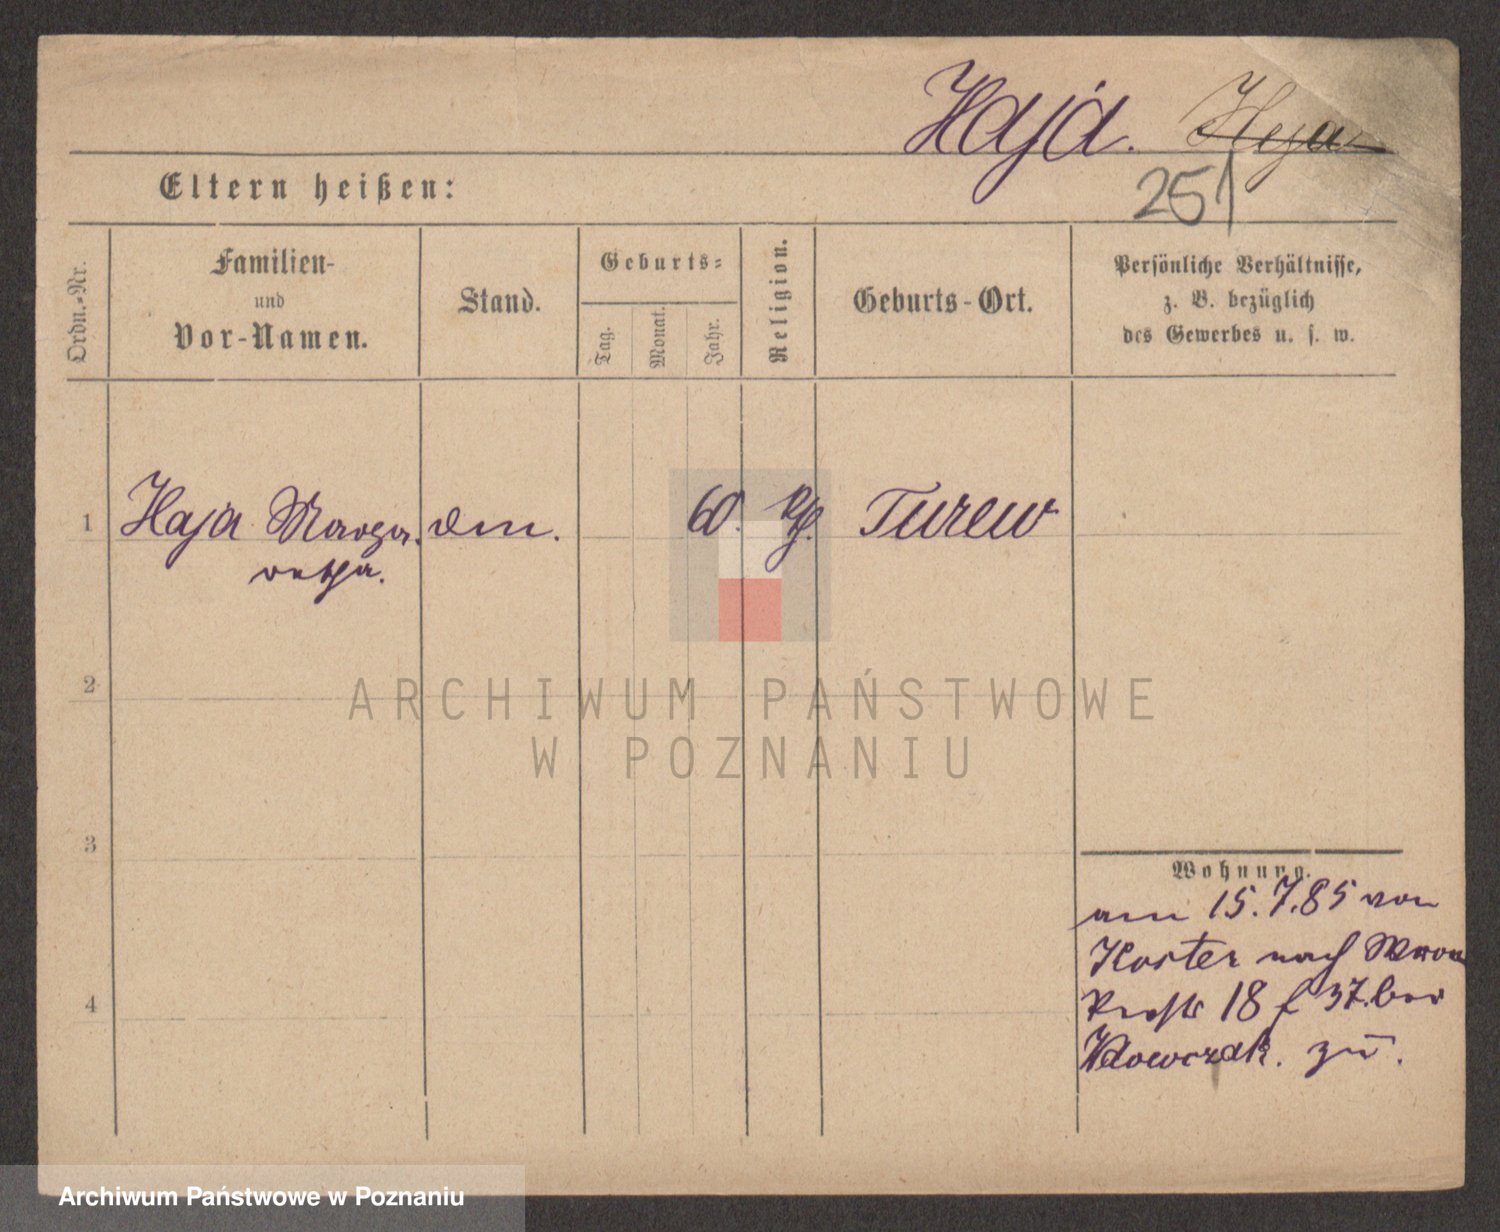 Haja. Heja
251
Eltern heißen:
Ordn.-Nr.
Familien-
und
Vor-Namen.
Stand.
Geburts-
Tag.
Monat.
Jahr.
Religion.
Geburts-Ort.
Persönliche Verhältnisse,
z. B. bezüglich
des Gewerbes u. s. w.
1 Haja Marga. 60. Turew
retha.
2
3
4
ARCHIWUM PAŃSTWOWE
W POZNANIU
Wohnung.
am 15.7.85 von
nach
18 37. bei
zu.
Archiwum Państwowe w Poznaniu